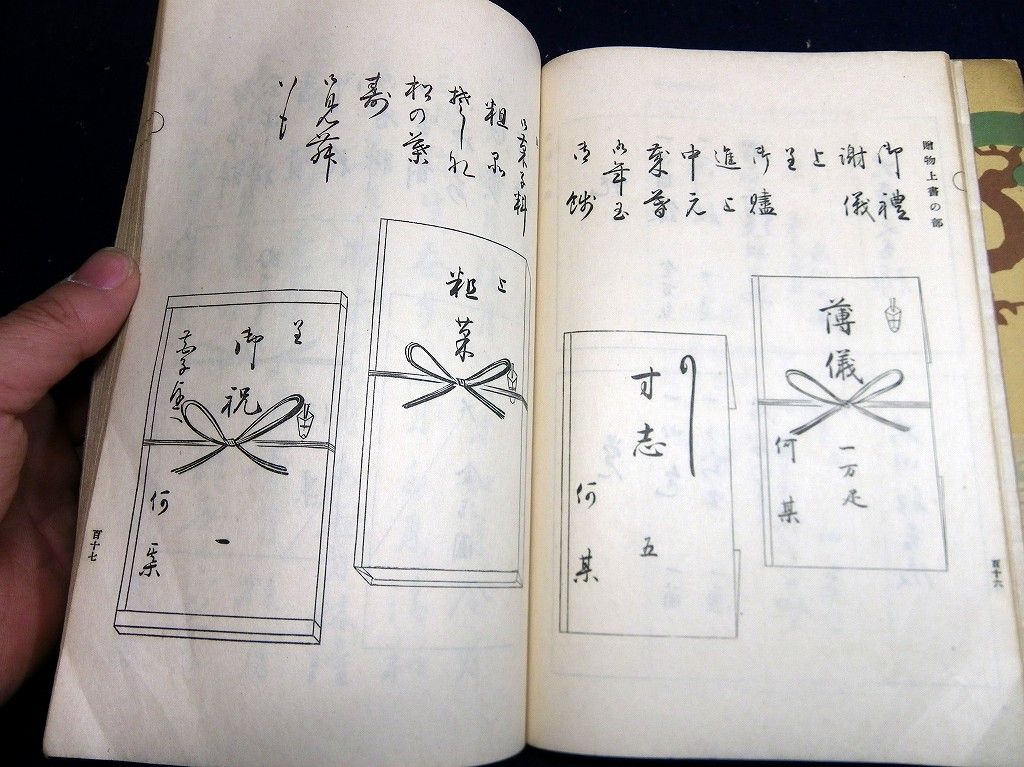 贈物上書の部
御禮
謝儀
上
呈
御贐
進上
中元
薬草
御年玉
薄儀
一万疋
何某
寸志
五
何某
百十六
御菓子料
粗品
松の葉
壽
御見舞
上
粗菓
呈
御祝
一
何某
百十七